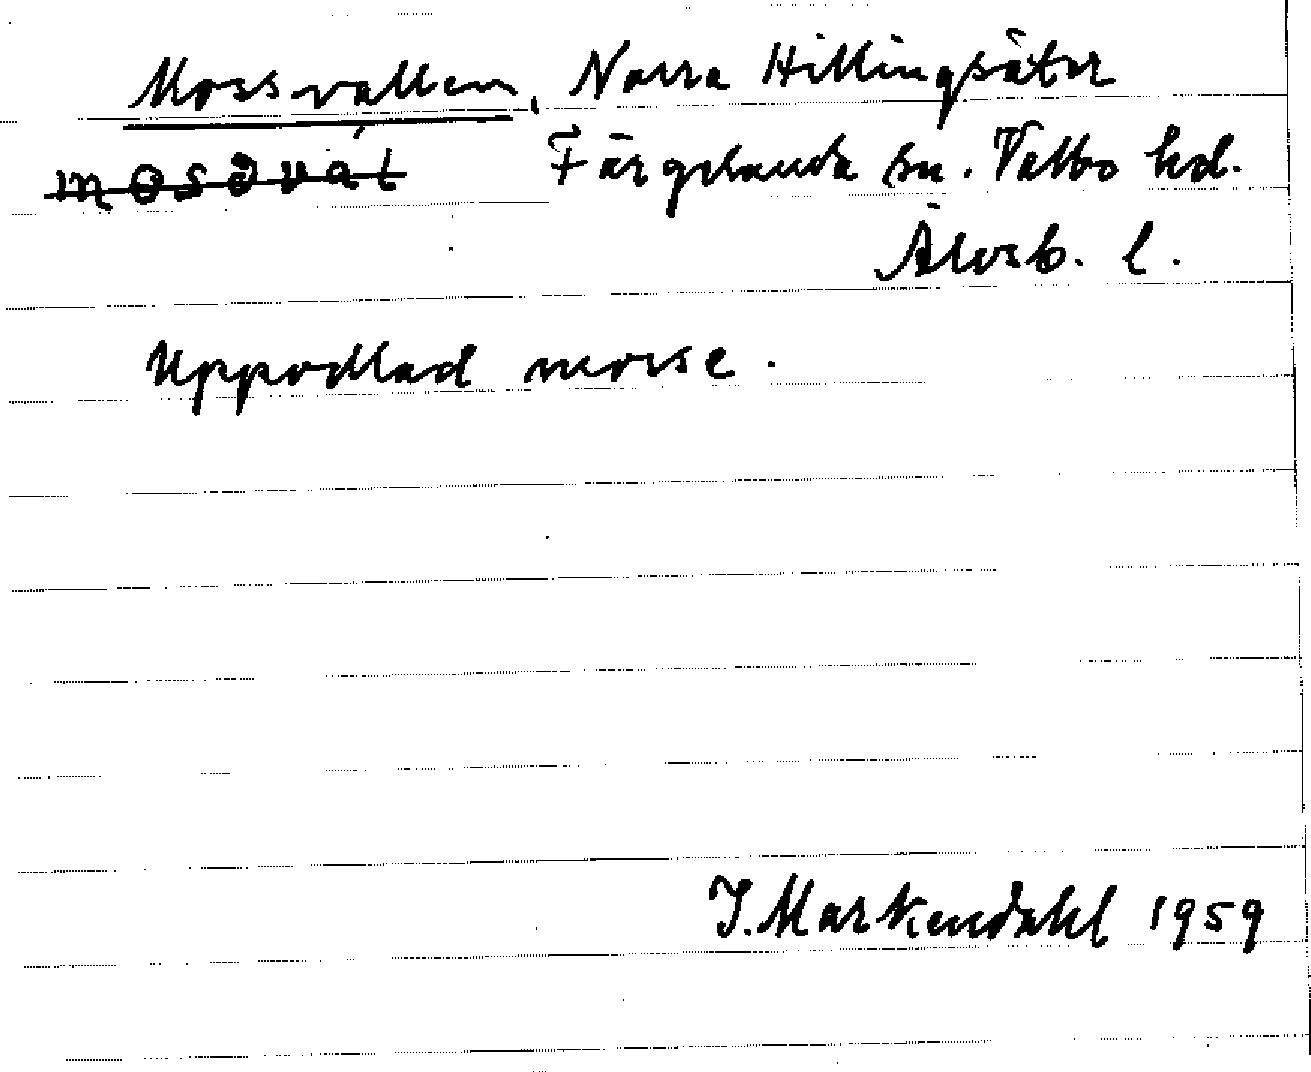 Mossvallen, Norra Hillingsäter
mosəvál Färgelanda sn. Valbo hd.
Älvsb. l.
Uppodlad mosse.
J. Markendahl 1959